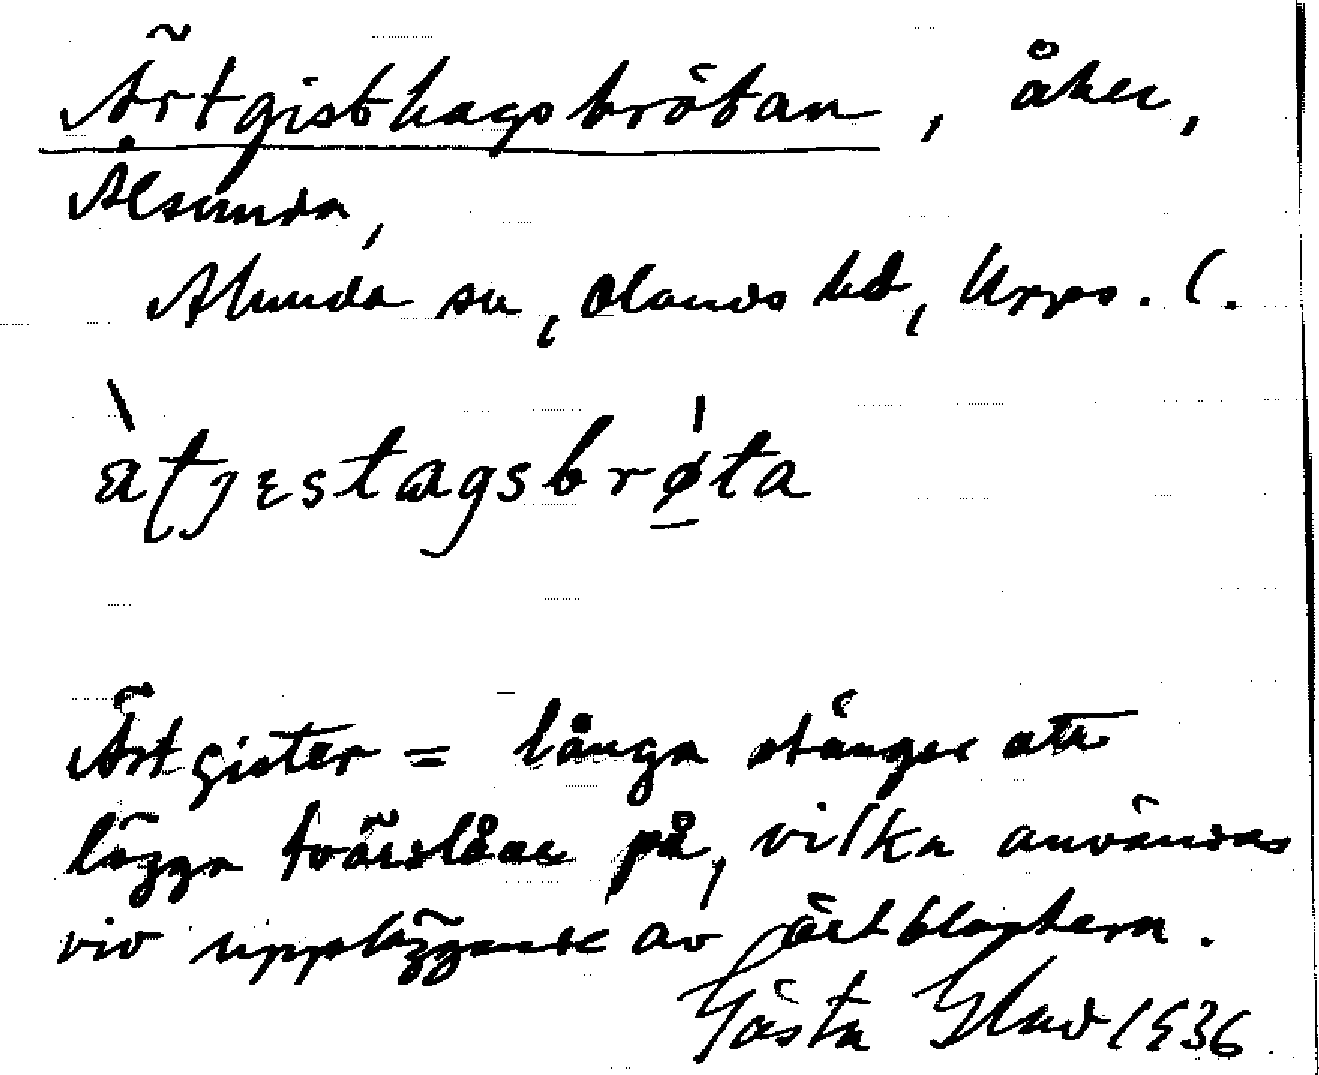 Ärtgisthagsbrötan, åker,
Ålsunda,
Alunda sn, Olands hd, Upps. l.
ätjestagsbrøta
Ärtgister = långa stänger att
lägga tvärslåar på, vilka användas
vid uppläggande av ärtblasterna.
Gösta Glad 1936